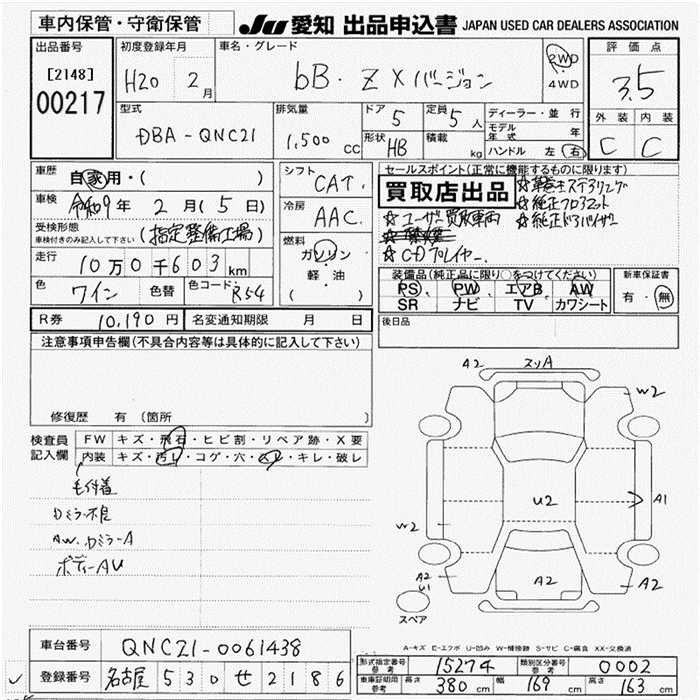 車内保管・守衛保管
JU 愛知 出品申込書 JAPAN USED CAR DEALERS ASSOCIATION
出品番号
[2148]
00217
初度登録年月
H20 2 月
車名・グレード
bB. Z Xバージョン
2WD
・
4WD
評価点
3.5
外装 内装
C C
型式
DBA-QNC21
排気量
1,500 cc
ドア
5
定員
5 人
形状
HB
積載
kg
ディーラー・並行
モデル
年式 年
ハンドル 左 右
車歴
自家用・( )
車検
令和9年 2 月( 5 日)
受検形態
車検付きのみ記入して下さい
(指定整備工場)
走行
10万0千603 km
色
ワイン
色替
色コード
R54
シフト
CAT
冷房
AAC
燃料
ガソリン
・
軽油
( )
セールスポイント(正常に機能するものに限ります)
買取店出品
☆革巻きステアリング
☆純正フロアマット
☆ユーザー買取車両
☆純正ドアバイザー
☆CDプレイヤー
装備品(純正品に限り○をつけてください)
PS PW エアB AW
SR ナビ TV カワシート
新車保証書
有・無
R券 10,190 円
名変通知期限 月 日
後日品
注意事項申告欄(不具合内容等は具体的に記入して下さい)
修復歴 有(箇所 )
検査員
記入欄
FW キズ・飛石・ヒビ割・リペア跡・X要
内装 キズ・汚レ・コゲ・穴・スレ・キレ・破レ
毛付着
Dミラー不良
AW. Dミラー A
ボディー AU
A2
スリA
W2
U2
A1
W2
A2
U1
A2
A2
スペア
A-キズ E-エクボ U-凹み W-補修跡 S-サビ C-腐食 XX-交換済
車台番号 QNC21-0061438
登録番号 名古屋 530 せ 2186
型式指定番号
参考
15274
類別区分番号
参考
0002
車庫証明用
参考
長さ 380 cm 幅 169 cm 高さ 163 cm